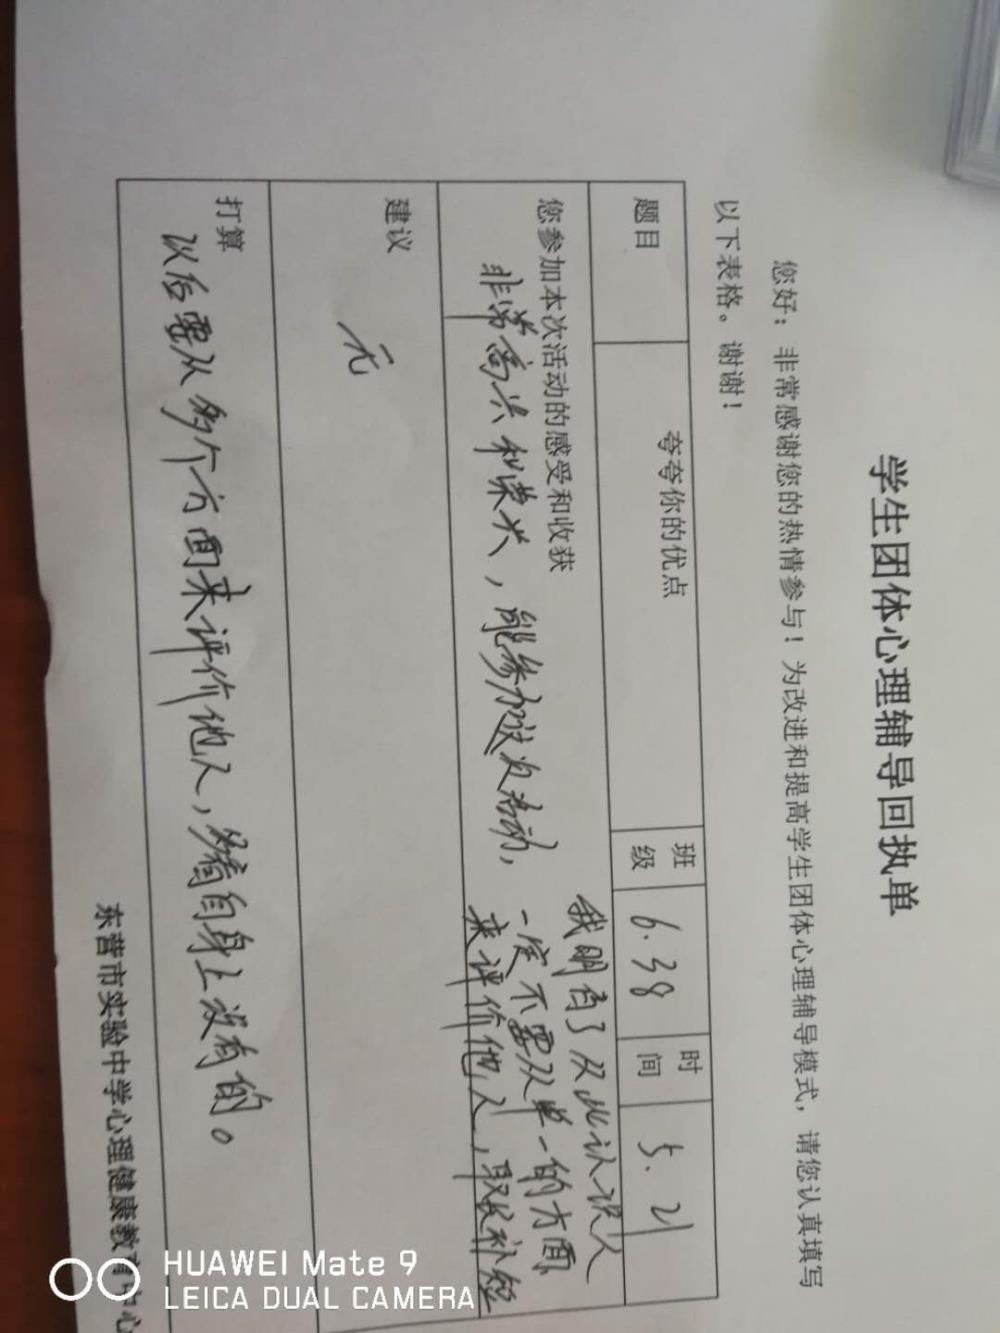 学生团体心理辅导回执单
您好：非常感谢您的热情参与！为改进和提高学生团体心理辅导模式，请您认真填写
以下表格。谢谢！
题目 夸夸你的优点 班级 6.38 时间 5.21
您参加本次活动的感受和收获
非常高兴和荣兴，能参加这次活动，
我明白了 认识人
一定不要从单一的方面
来评价他人，取长补短
建议
无
打算
以后要从多个方面来评价他人，多看自身上没有的。
东营市实验中学心理健康教育中心
HUAWEI Mate 9
LEICA DUAL CAMERA